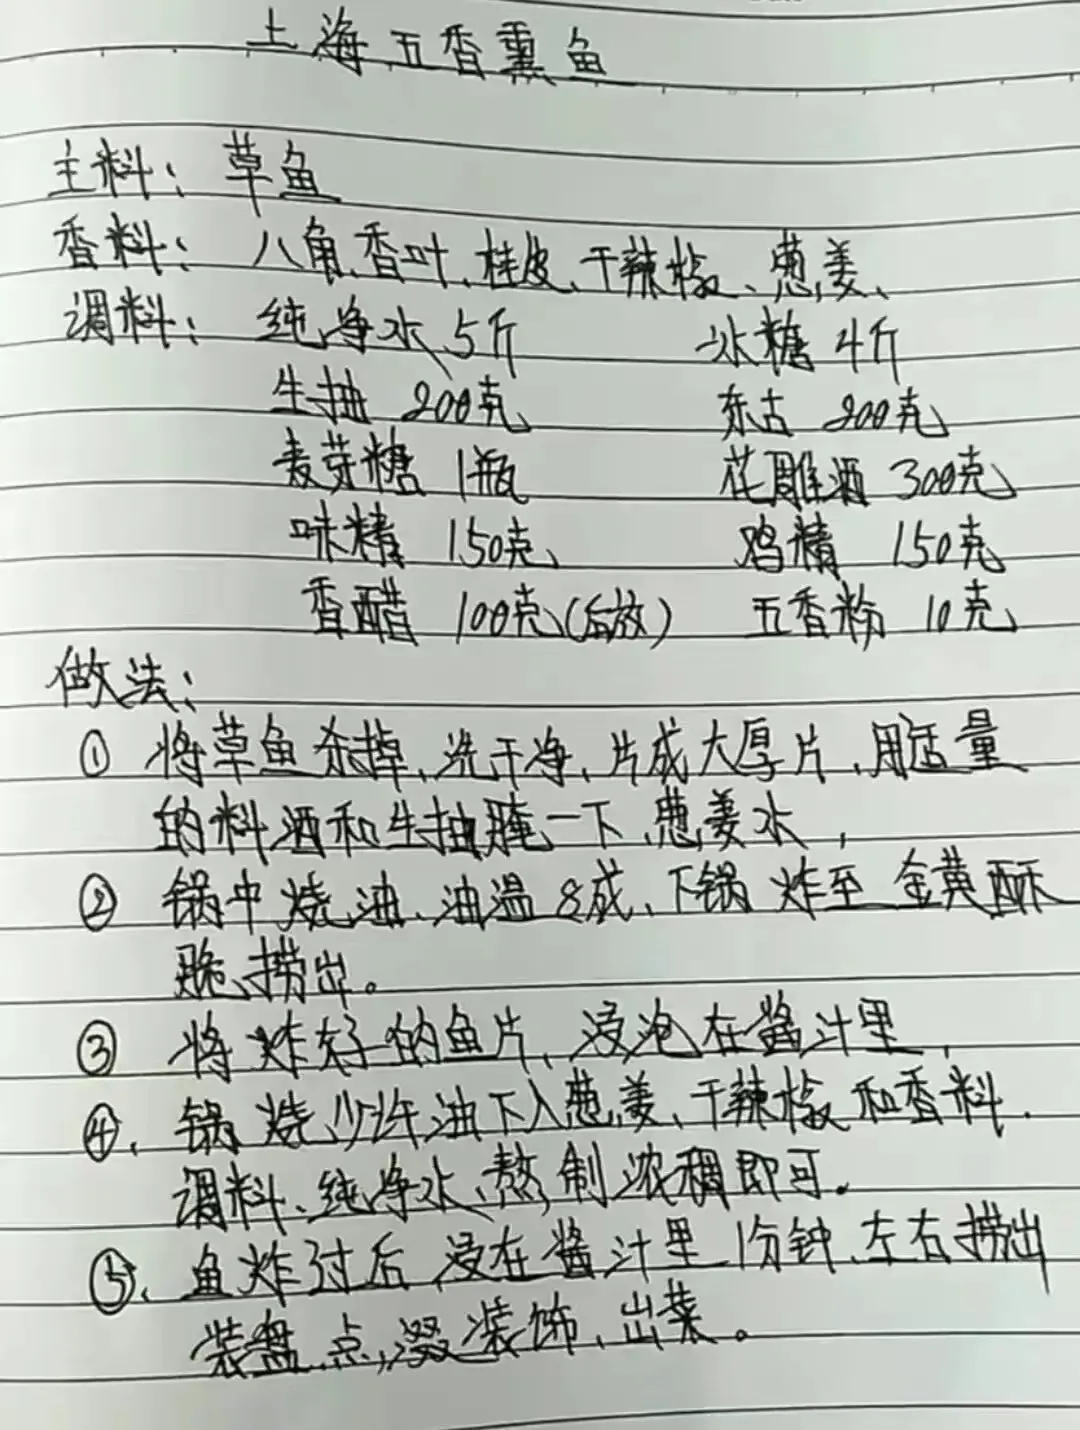 上海五香熏鱼
主料：草鱼
香料：八角、香叶、桂皮、干辣椒、葱姜、
调料：纯净水 5斤 冰糖 4斤
生抽 200克 东古 200克
麦芽糖 1瓶 花雕酒 300克
味精 150克 鸡精 150克
香醋 100克(后放) 五香粉 10克
做法：
① 将草鱼杀掉、洗干净、片成大厚片、用适量
的料酒和生抽腌一下、葱姜水，
② 锅中烧油、油温8成、下锅炸至金黄酥
脆、捞出。
③ 将炸好的鱼片、浸泡在酱汁里，
④、锅烧少许油下入葱姜、干辣椒和香料.
调料、纯净水、熬制浓稠即可。
⑤、鱼炸过后浸在酱汁里1分钟左右捞出
装盘点缀装饰、出菜。